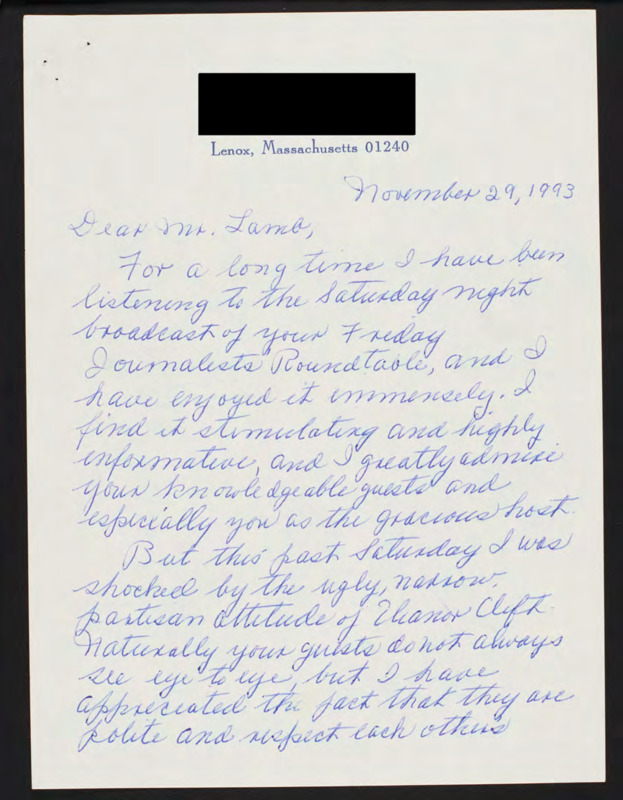 Lenox, Massachusetts 01240
November 29, 1993
Dear Mr. Lamb,
For a long time I have been
listening to the Saturday night
broadcast of your Friday
Journalists Roundtable, and I
have enjoyed it immensely. I
find it stimulating and highly
informative, and I greatly admire
your knowledgeable guests and
especially you as the gracious host.
But this past Saturday I was
shocked by the ugly, narrow,
partisan attitude of Eleanor Clift.
Naturally your guests do not always
see eye to eye, but I have
appreciated the fact that they are
polite and respect each others